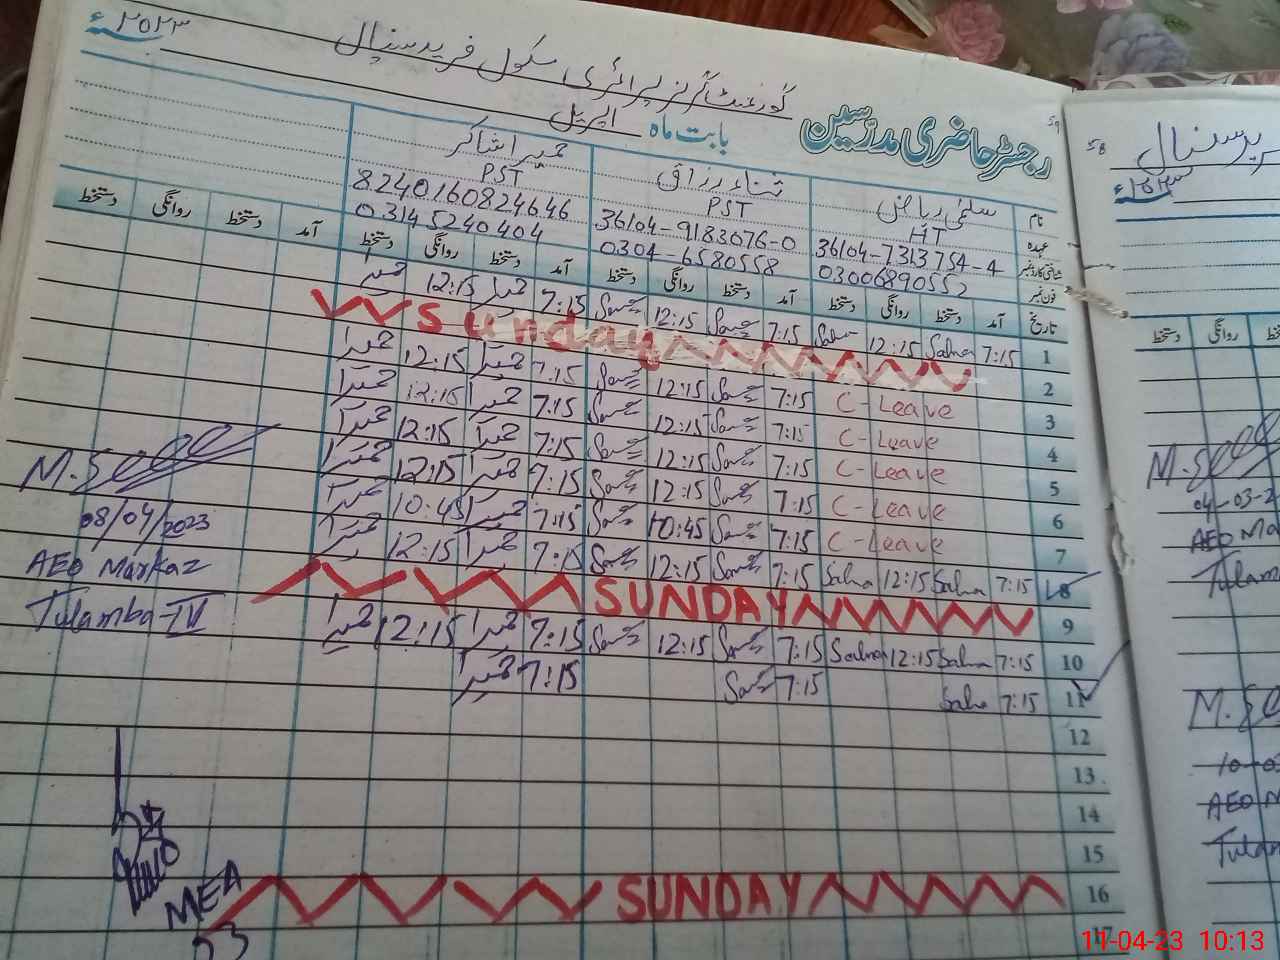 ۲۰۲۳ء
گورنمنٹ گرلز پرائمری سکول فرید سنپال
رجسٹر حاضری مدرسین بابت ماہ اپریل
نام سلمیٰ ریاض ثناء رزاق حمیرا شاکر
عہدہ HT PST PST
شناختی کارڈ نمبر 36104-7313754-4 36104-9183076-0 8240160824646
فون نمبر 03006890552 0304-6580558 03145240404
تاریخ آمد دستخط روانگی دستخط آمد دستخط روانگی دستخط آمد دستخط روانگی دستخط آمد دستخط روانگی دستخط
1 7:15 Salma 12:15 Salma 7:15 12:15 7:15 حمیرا 12:15 حمیرا
2 Sunday
3 C-Leave 7:15 12:15 7:15 حمیرا 12:15 حمیرا
4 C-Leave 7:15 12:15 7:15 حمیرا 12:15 حمیرا
5 C-Leave 7:15 12:15 7:15 حمیرا 12:15 حمیرا
6 C-Leave 7:15 12:15 7:15 حمیرا 12:15 حمیرا
7 C-Leave 7:15 10:45 7:15 حمیرا 10:45 حمیرا
8 7:15 Salma 12:15 Salma 7:15 12:15 7:15 حمیرا 12:15 حمیرا
9 SUNDAY
10 7:15 Salma 12:15 Salma 7:15 12:15 7:15 حمیرا 12:15 حمیرا
11 7:15 Salma 7:15 7:15 حمیرا
12
13
14
15
16 SUNDAY
17
08/04/2023
AEO Markaz
Tulamba-IV
MEA
03
59
58
۲۰۲۳ء
دستخط روانگی
04-03-2
AEO Ma
Tulam
10-0
AEO M
Tulam
11-04-23 10:13